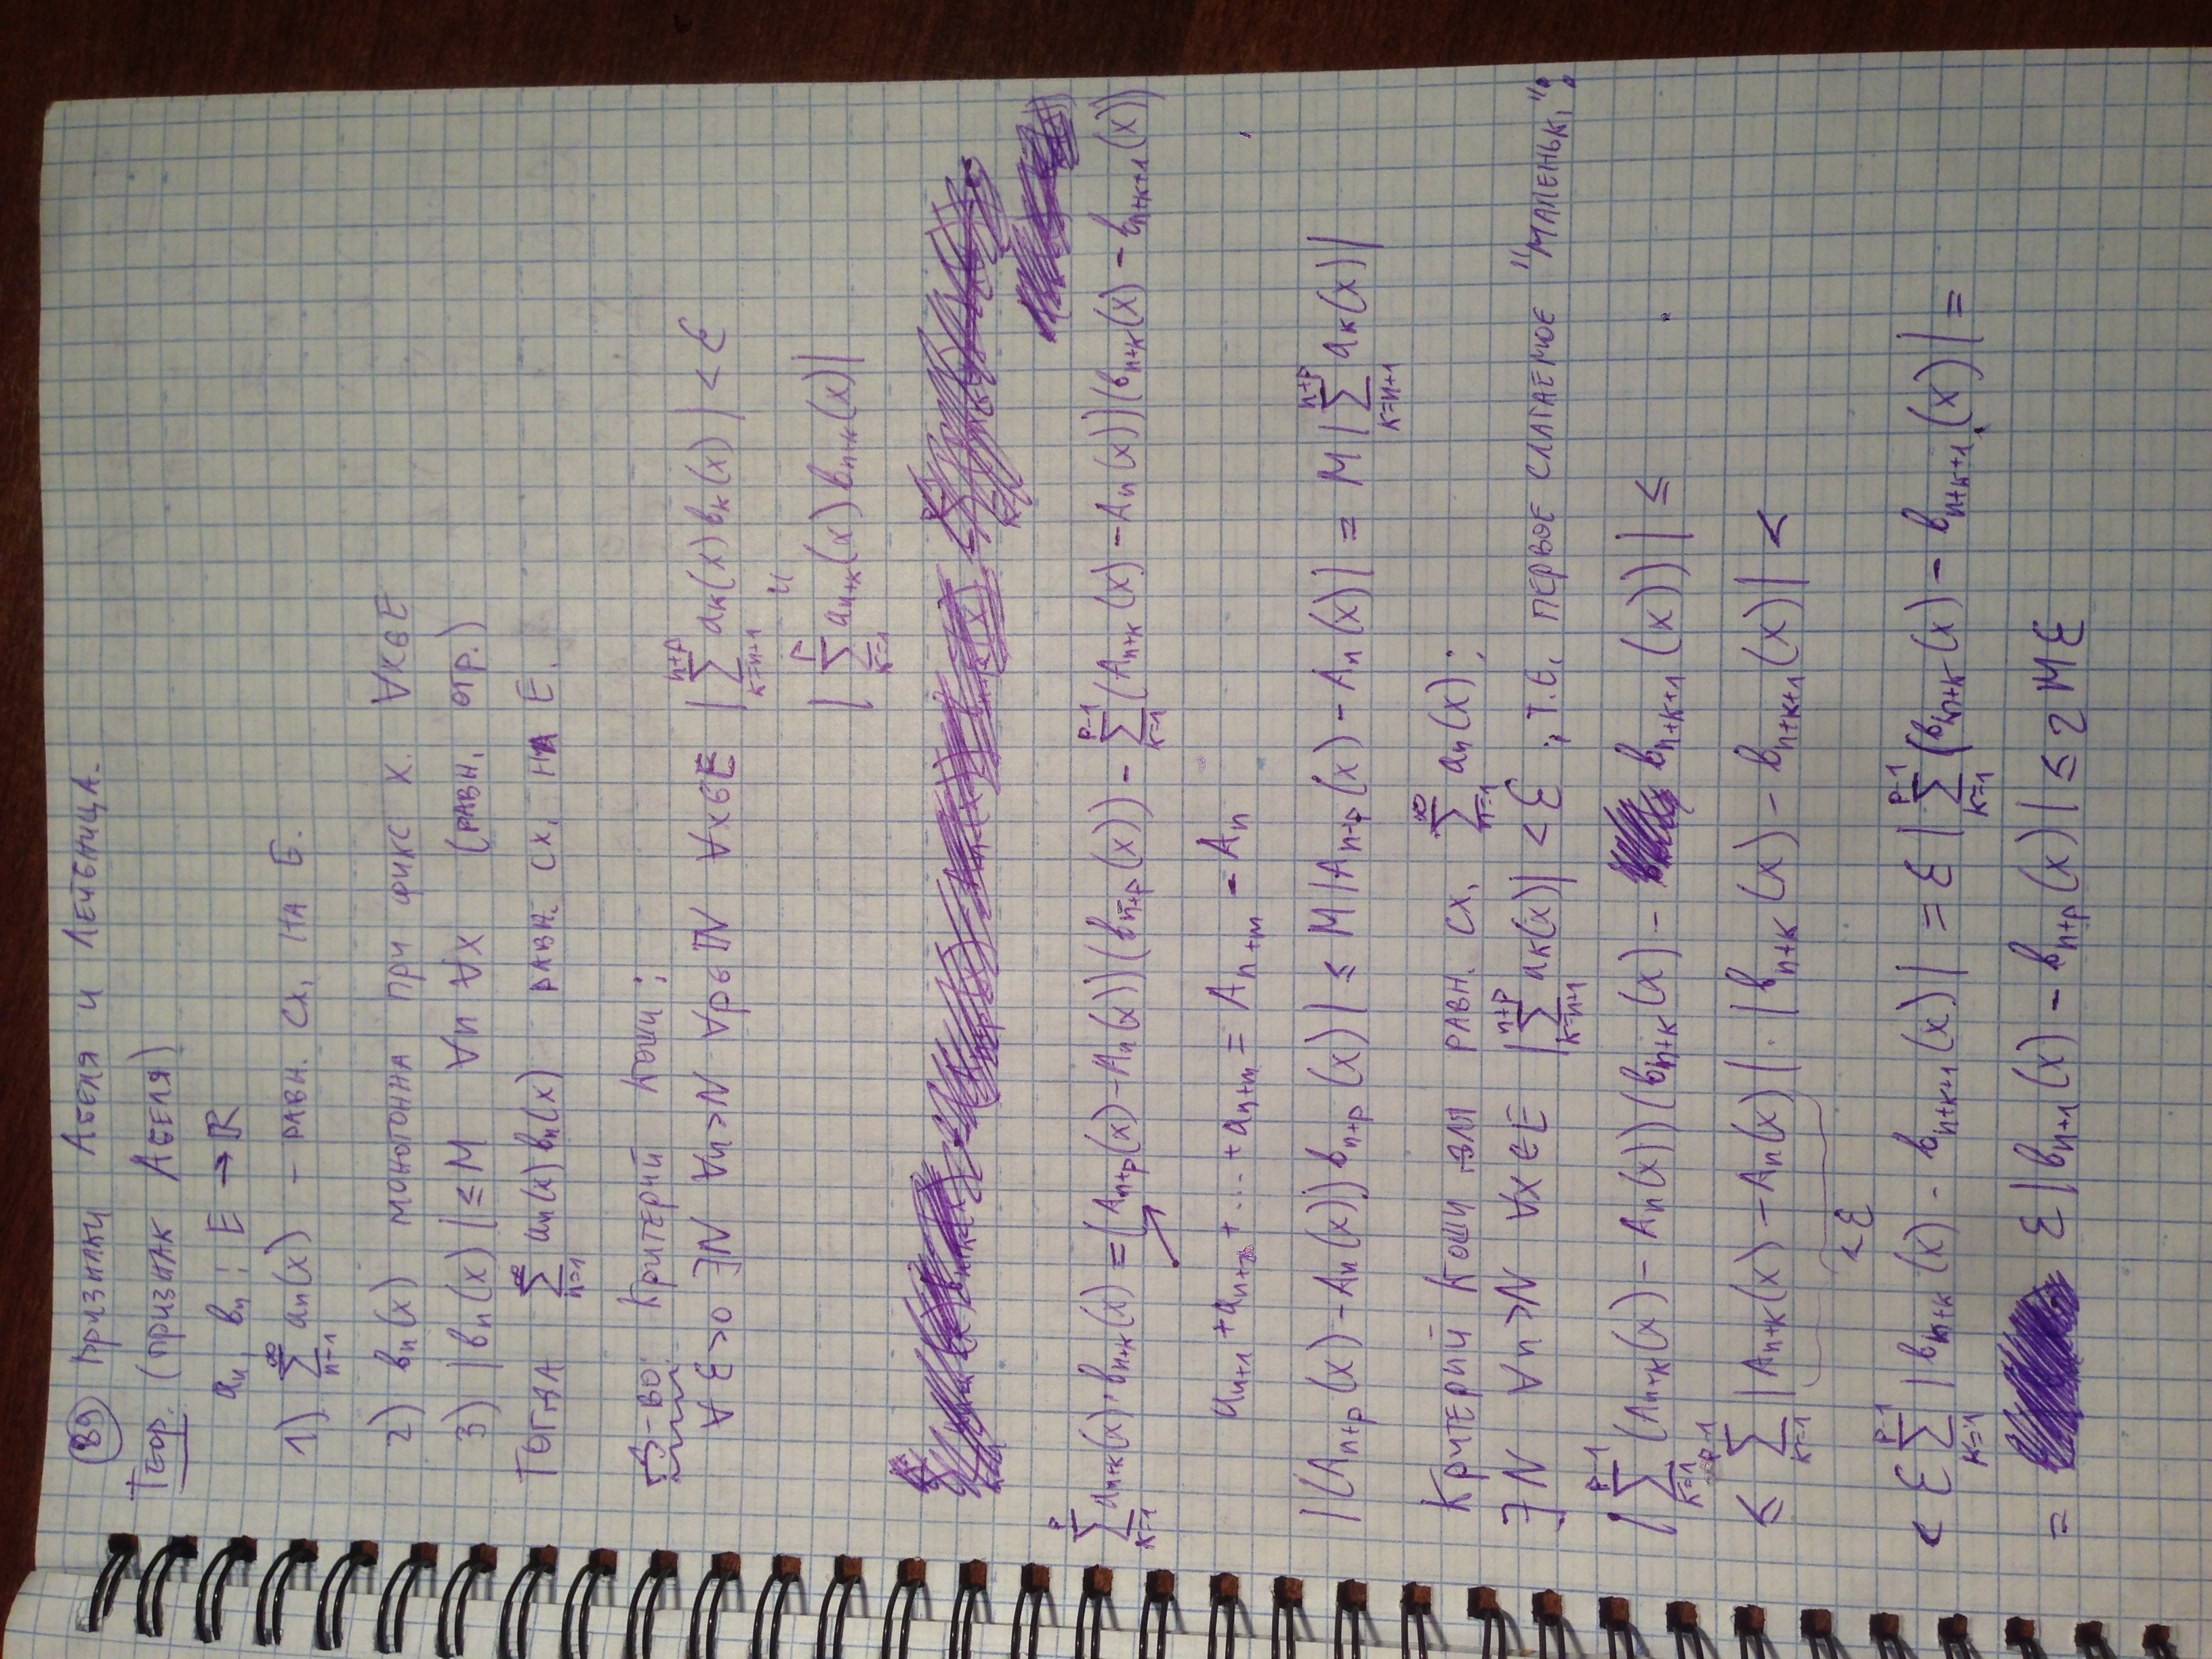 (89) Признаки Абеля и Лейбница.
Теор. (признак Абеля)
aₙ, bₙ : E → ℝ
1) ∑_{n=1}^{∞} aₙ(x) – равн. сх. на E.
2) bₙ(x) монотонна при фикс x. ∀x∈E
3) |bₙ(x)| ≤ M ∀n ∀x (равн. огр.)
Тогда ∑_{n=1}^{∞} aₙ(x) bₙ(x) равн. сх. на E.
Д-во: Критерий Коши:
∀ε>0 ∃N ∀n>N ∀p∈ℕ ∀x∈E |∑_{k=n+1}^{n+p} a_k(x) b_k(x)| < ε
"
|∑_{k=1}^{p} a_{n+k}(x) b_{n+k}(x)|
∑_{k=1}^{p} a_{n+k}(x)·b_{n+k}(x) = (A_{n+p}(x) – Aₙ(x))(b_{n+p}(x)) – ∑_{k=1}^{p-1} (A_{n+k}(x) – Aₙ(x))(b_{n+k}(x) – b_{n+k+1}(x))
a_{n+1} + a_{n+2} + ... + a_{n+m} = A_{n+m} – Aₙ
|(A_{n+p}(x) – Aₙ(x)) b_{n+p}(x)| ≤ M|A_{n+p}(x) – Aₙ(x)| = M|∑_{k=n+1}^{n+p} a_k(x)|
Критерий Коши для равн. сх. ∑_{n=1}^{∞} aₙ(x):
∃N ∀n>N ∀x∈E |∑_{k=n+1}^{n+p} a_k(x)| < ε, т.е. первое слагаемое "маленьк.":
|∑_{k=1}^{p-1} (A_{n+k}(x) – Aₙ(x))(b_{n+k}(x) – b_{n+k+1}(x))| ≤
≤ ∑_{k=1}^{p-1} |A_{n+k}(x) – Aₙ(x)|·|b_{n+k}(x) – b_{n+k+1}(x)| <
<ε
< ε ∑_{k=1}^{p-1} |b_{n+k}(x) – b_{n+k+1}(x)| = ε |∑_{k=1}^{p-1} (b_{n+k}(x) – b_{n+k+1}(x)| =
= ε|b_{n+1}(x) – b_{n+p}(x)| ≤ 2Mε